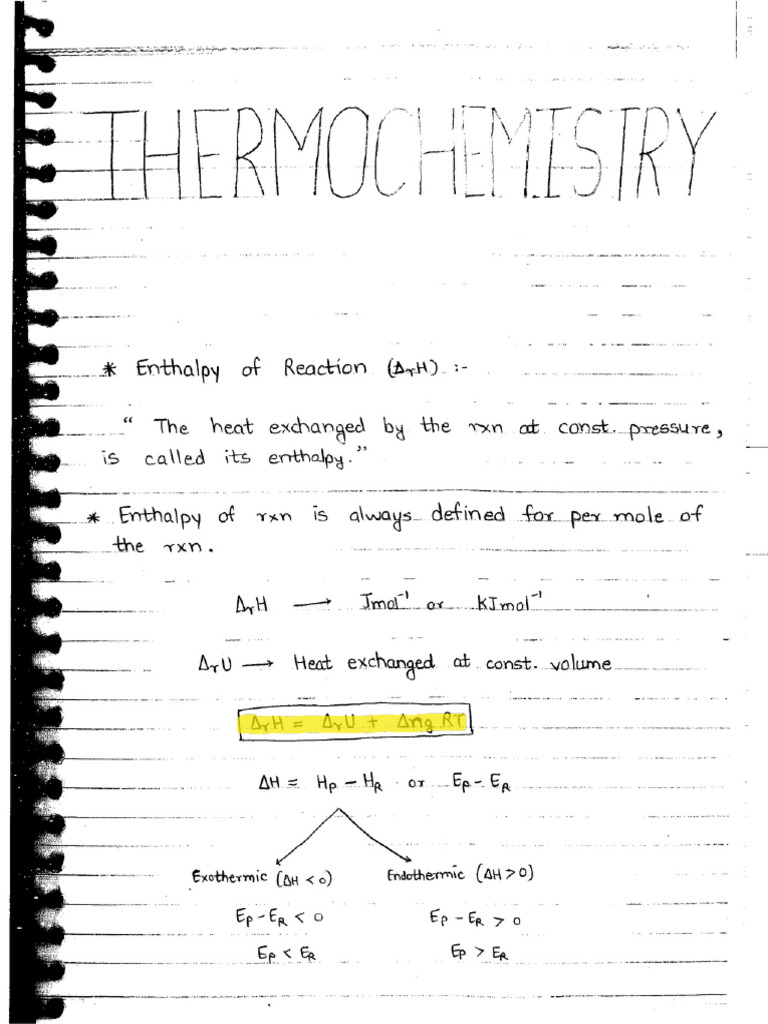 THERMOCHEMISTRY
* Enthalpy of Reaction (ΔrH) :-
“ The heat exchanged by the rxn at const. pressure,
is called its enthalpy.”
* Enthalpy of rxn is always defined for per mole of
the rxn.
ΔrH → Jmol⁻¹ or kJmol⁻¹
ΔrU → Heat exchanged at const. volume
ΔrH = ΔrU + Δng RT
ΔH = HP – HR or EP – ER
Exothermic (ΔH < 0) Endothermic (ΔH > 0)
EP – ER < 0 EP – ER > 0
EP < ER EP > ER